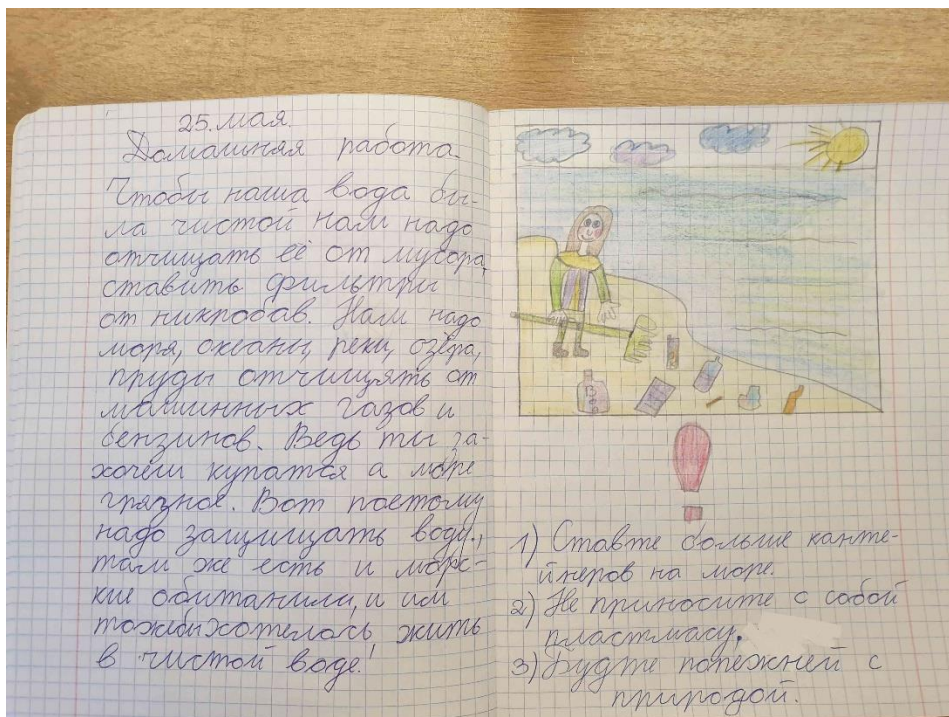 25. мая.
Домашняя работа.
Чтобы наша вода бы-
ла чистой нам надо
отчищать её от мусора,
ставить фильтры
от микробав. Нам надо
моря, океаны, реки, озёра,
пруды отчищять от
машинных газов и
бензинов. Ведь ты за-
хочеш купатся а море
грязное. Вот поетому
надо защищать воду,
там же есть и морс-
кие обитанили, и им
тожебыхотелось жить
в чистой воде!
1) Ставте больше канте-
йнеров на море.
2) Не приносите с собой
пластмасу.
3) Будте попежней с
природой.